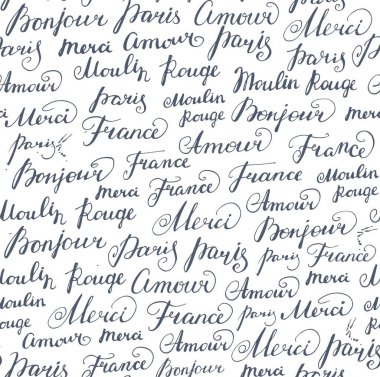 Bonjour Paris Amour Merci
Paris merci Amour Paris
Moulin Rouge Moulin Rouge
Paris Moulin Rouge Bonjour
Merci France Amour France
Paris
Bonjour France France Moulin Rouge
merci France Amour
Moulin Rouge Merci Bonjour
Bonjour Paris Paris Paris France
Moulin Rouge Amour Amour merci
Moulin Rouge Merci France Paris Merci
Amour merci Amour Paris
Paris France Bonjour Merci